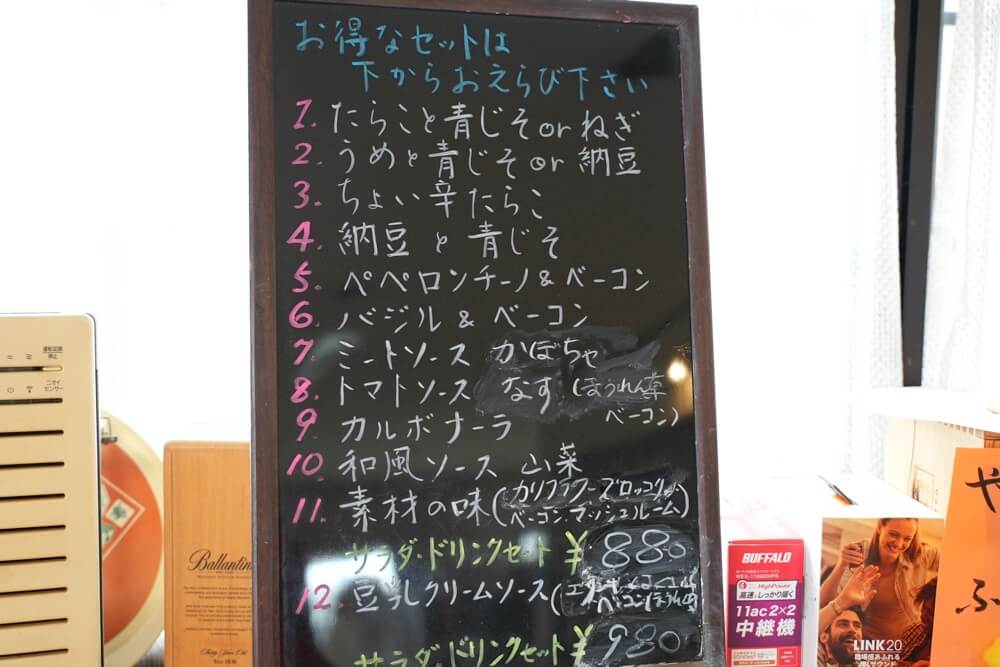 お得なセットは
下からおえらび下さい
1. たらこと青じそor ねぎ
2. うめと青じそor 納豆
3. ちょい辛たらこ
4. 納豆と青じそ
5. ペペロンチーノ&ベーコン
6. バジル&ベーコン
7. ミートソース かぼちゃ
8. トマトソース なす(ほうれん草
ベーコン)
9. カルボナーラ
10 和風ソース 山菜
11. 素材の味(カリフラワー・ブロッコリー
ベーコン・マッシュルーム)
サラダ・ドリンクセット ¥880
12. 豆乳クリームソース(
ベーコン
サラダドリンクセット ¥980
運転切換
停止
ニオイ
センサー
Ballantin
BUFFALO
HighPower
高速&しっかり届く
11ac 2×2
中継機
LINK20
臨場感あふれる
や
ふ